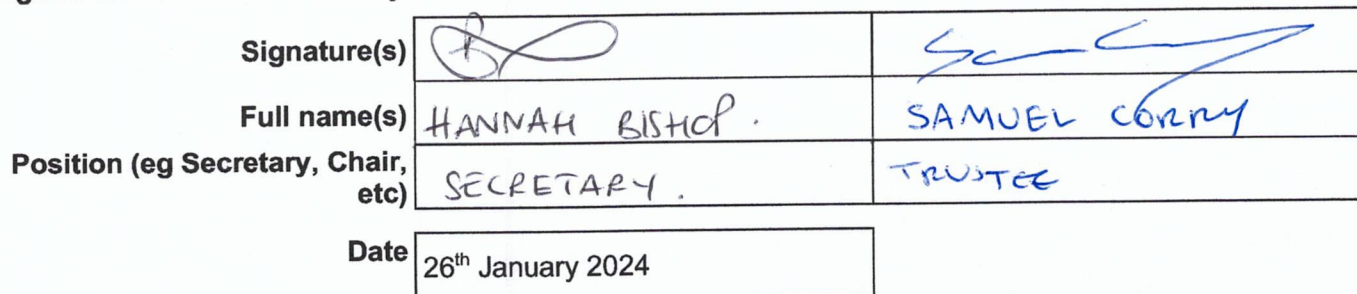 Signature(s)
Full name(s) HANNAH BISHOP. SAMUEL CORRY
Position (eg Secretary, Chair, etc) SECRETARY. TRUSTEE
Date 26th January 2024